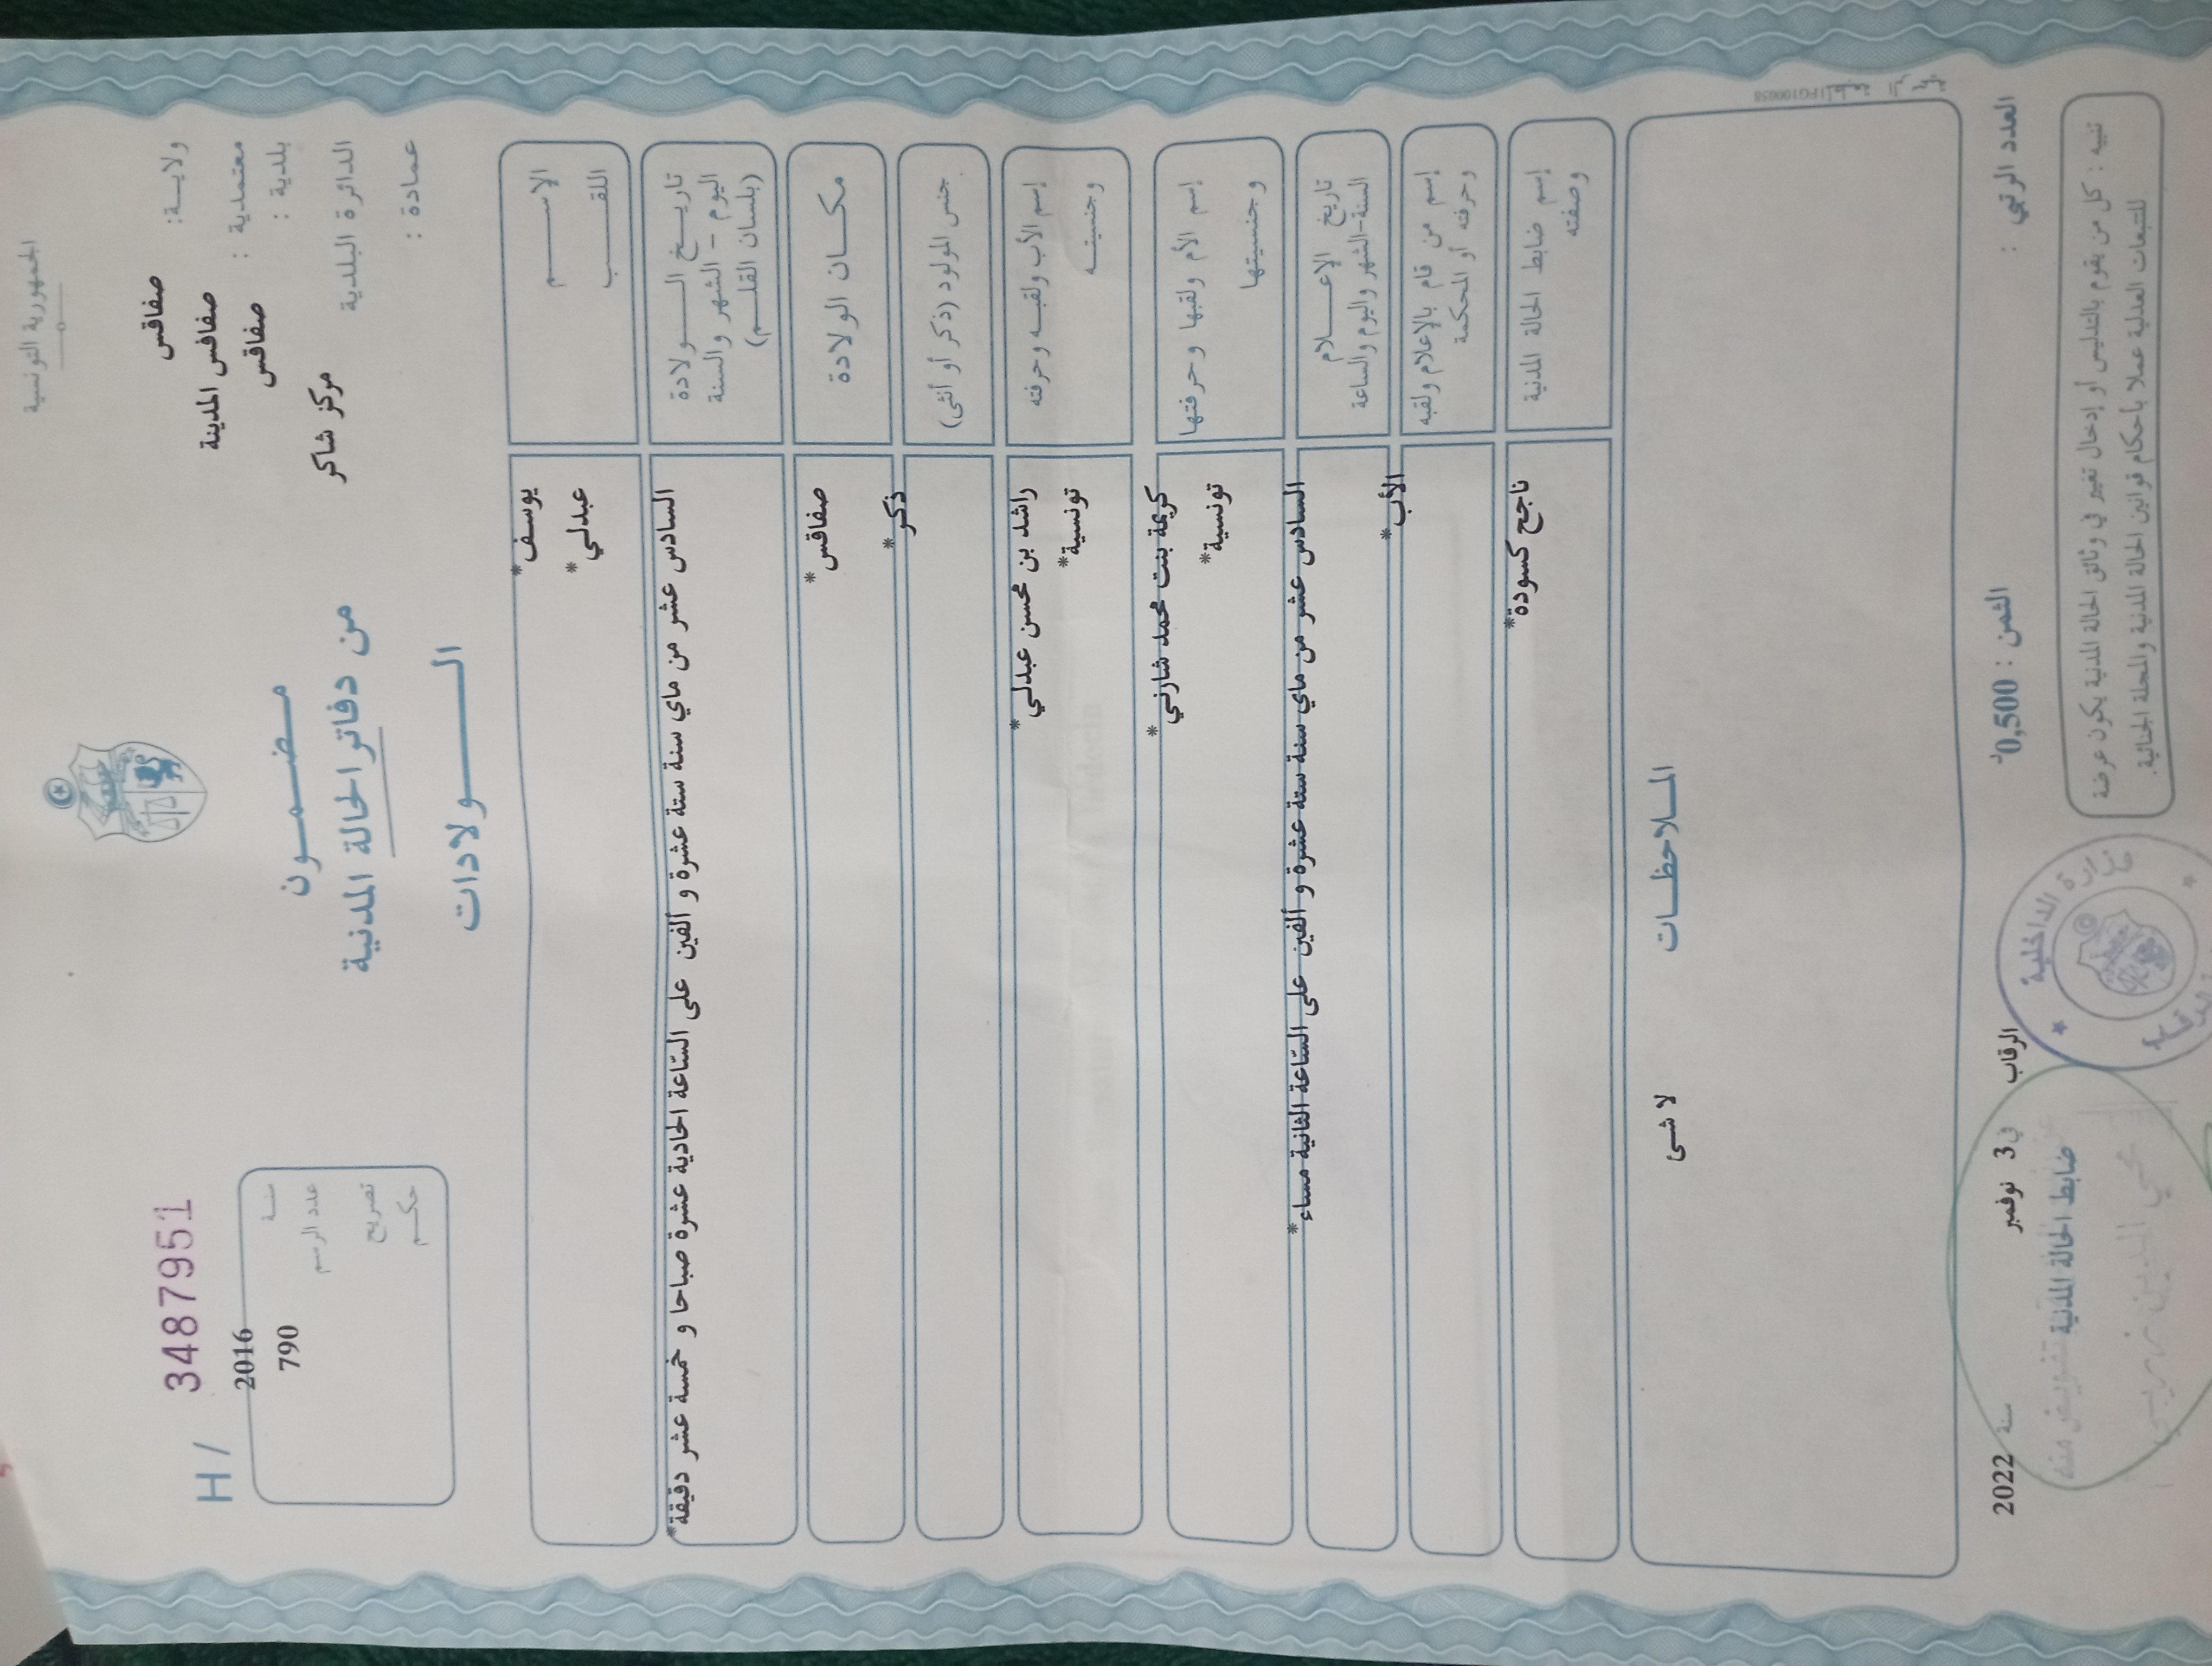 الجمهورية التونسية
ولاية: صفاقس
معتمدية : صفاقس المدينة
بلدية : صفاقس
الدائرة البلدية مركز شاكر
عمادة :
H/ 3487951
سنة 2016
عدد الرسم 790
تصريح
حكم
مضمون
من دفاتر الحالة المدنية
الولادات
الاسم يوسف*
اللقب عبدلي*
تاريخ الولادة
اليوم - الشهر والسنة
(بلسان القلم)
السادس عشر من ماي سنة ستة عشرة و ألفين على الساعة الحادية عشرة صباحا و خمسة عشر دقيقة*
مكان الولادة صفاقس*
جنس المولود (ذكر أو أنثى) ذكر*
إسم الأب ولقبه وحرفته راشد بن محسن عبدلي*
وجنسيته تونسية*
إسم الأم ولقبها وحرفتها كريمة بنت محمد شارني*
وجنسيتها تونسية*
تاريخ الإعلام
السنة-الشهر واليوم والساعة
السادس عشر من ماي سنة ستة عشرة و ألفين على الساعة الثانية مساء*
إسم من قام بالإعلام ولقبه
وحرفته أو المحكمة
الأب*
إسم ضابط الحالة المدنية
وصفته
ناجح كسودة*
الملاحظات
لا شئ
FG100058
العدد الرتبي :
الثمن : 0,500د
الرقاب في 3 نوفمبر سنة 2022
ضابط الحالة المدنية
بتفويض منه
وزارة الداخلية
تنبيه : كل من يقوم بالتدليس أو إدخال تغيير في وثائق الحالة المدنية يكون عرضة
للتتبعات العدلية عملا بأحكام قوانين الحالة المدنية والمجلة الجنائية.